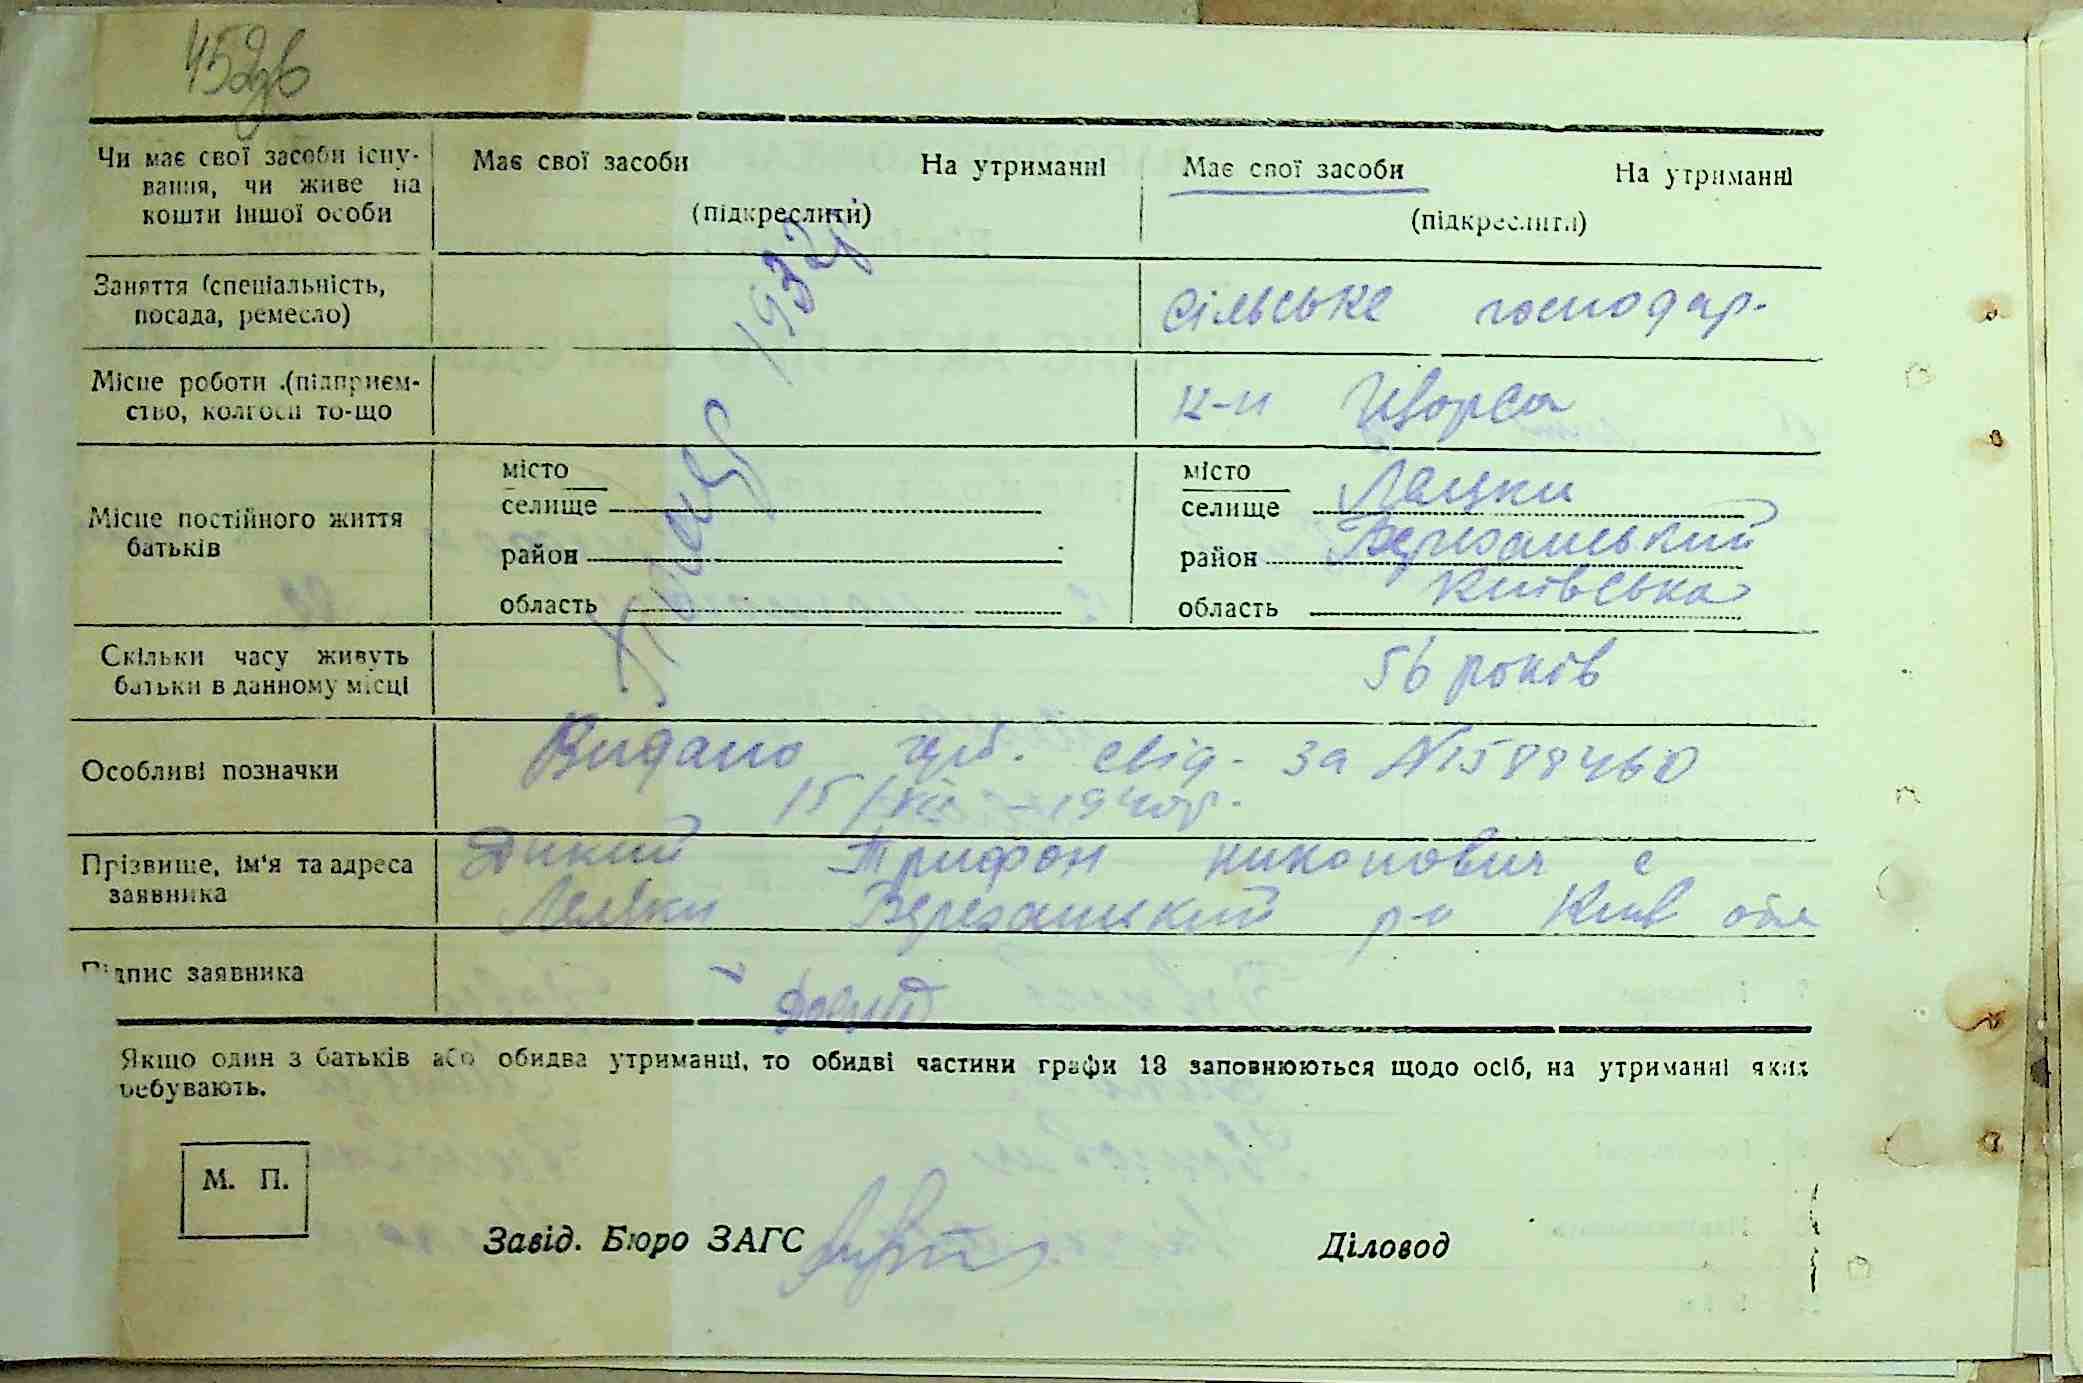 452зв
Чи має свої засоби існу-
вання, чи живе на
кошти іншої особи
Має свої засоби На утриманні
(підкреслити)
Має свої засоби На утриманні
(підкреслити)
Заняття (спеціальність,
посада, ремесло)
сільське господар.
Місце роботи (підприєм-
ство, колгосп то-що
к-п Щорса
Місце постійного життя
батьків
місто
селище
район
область
місто
селище Лецки
район Березанський
область Київська
помер 1932р
Скільки часу живуть
батьки в данному місці
56 років
Особливі позначки
Видано свід. за №588460
15/XII-1940р.
Прізвище, ім'я та адреса
заявника
Дикий Трифон никонович с
Лецки Березанський р-н Київ обл
Підпис заявника
Якщо один з батьків або обидва утриманці, то обидві частини графи 13 заповнюються щодо осіб, на утриманні яких
ребувають.
М. П.
Завід. Бюро ЗАГС
Діловод